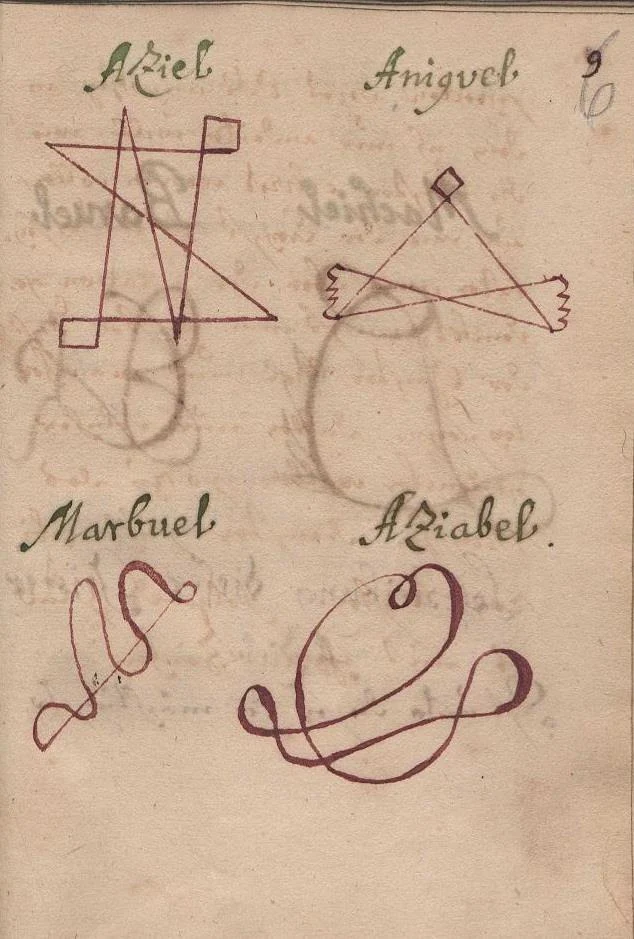 AZiel Aniquel 9
6
Marbuel AZiabel.